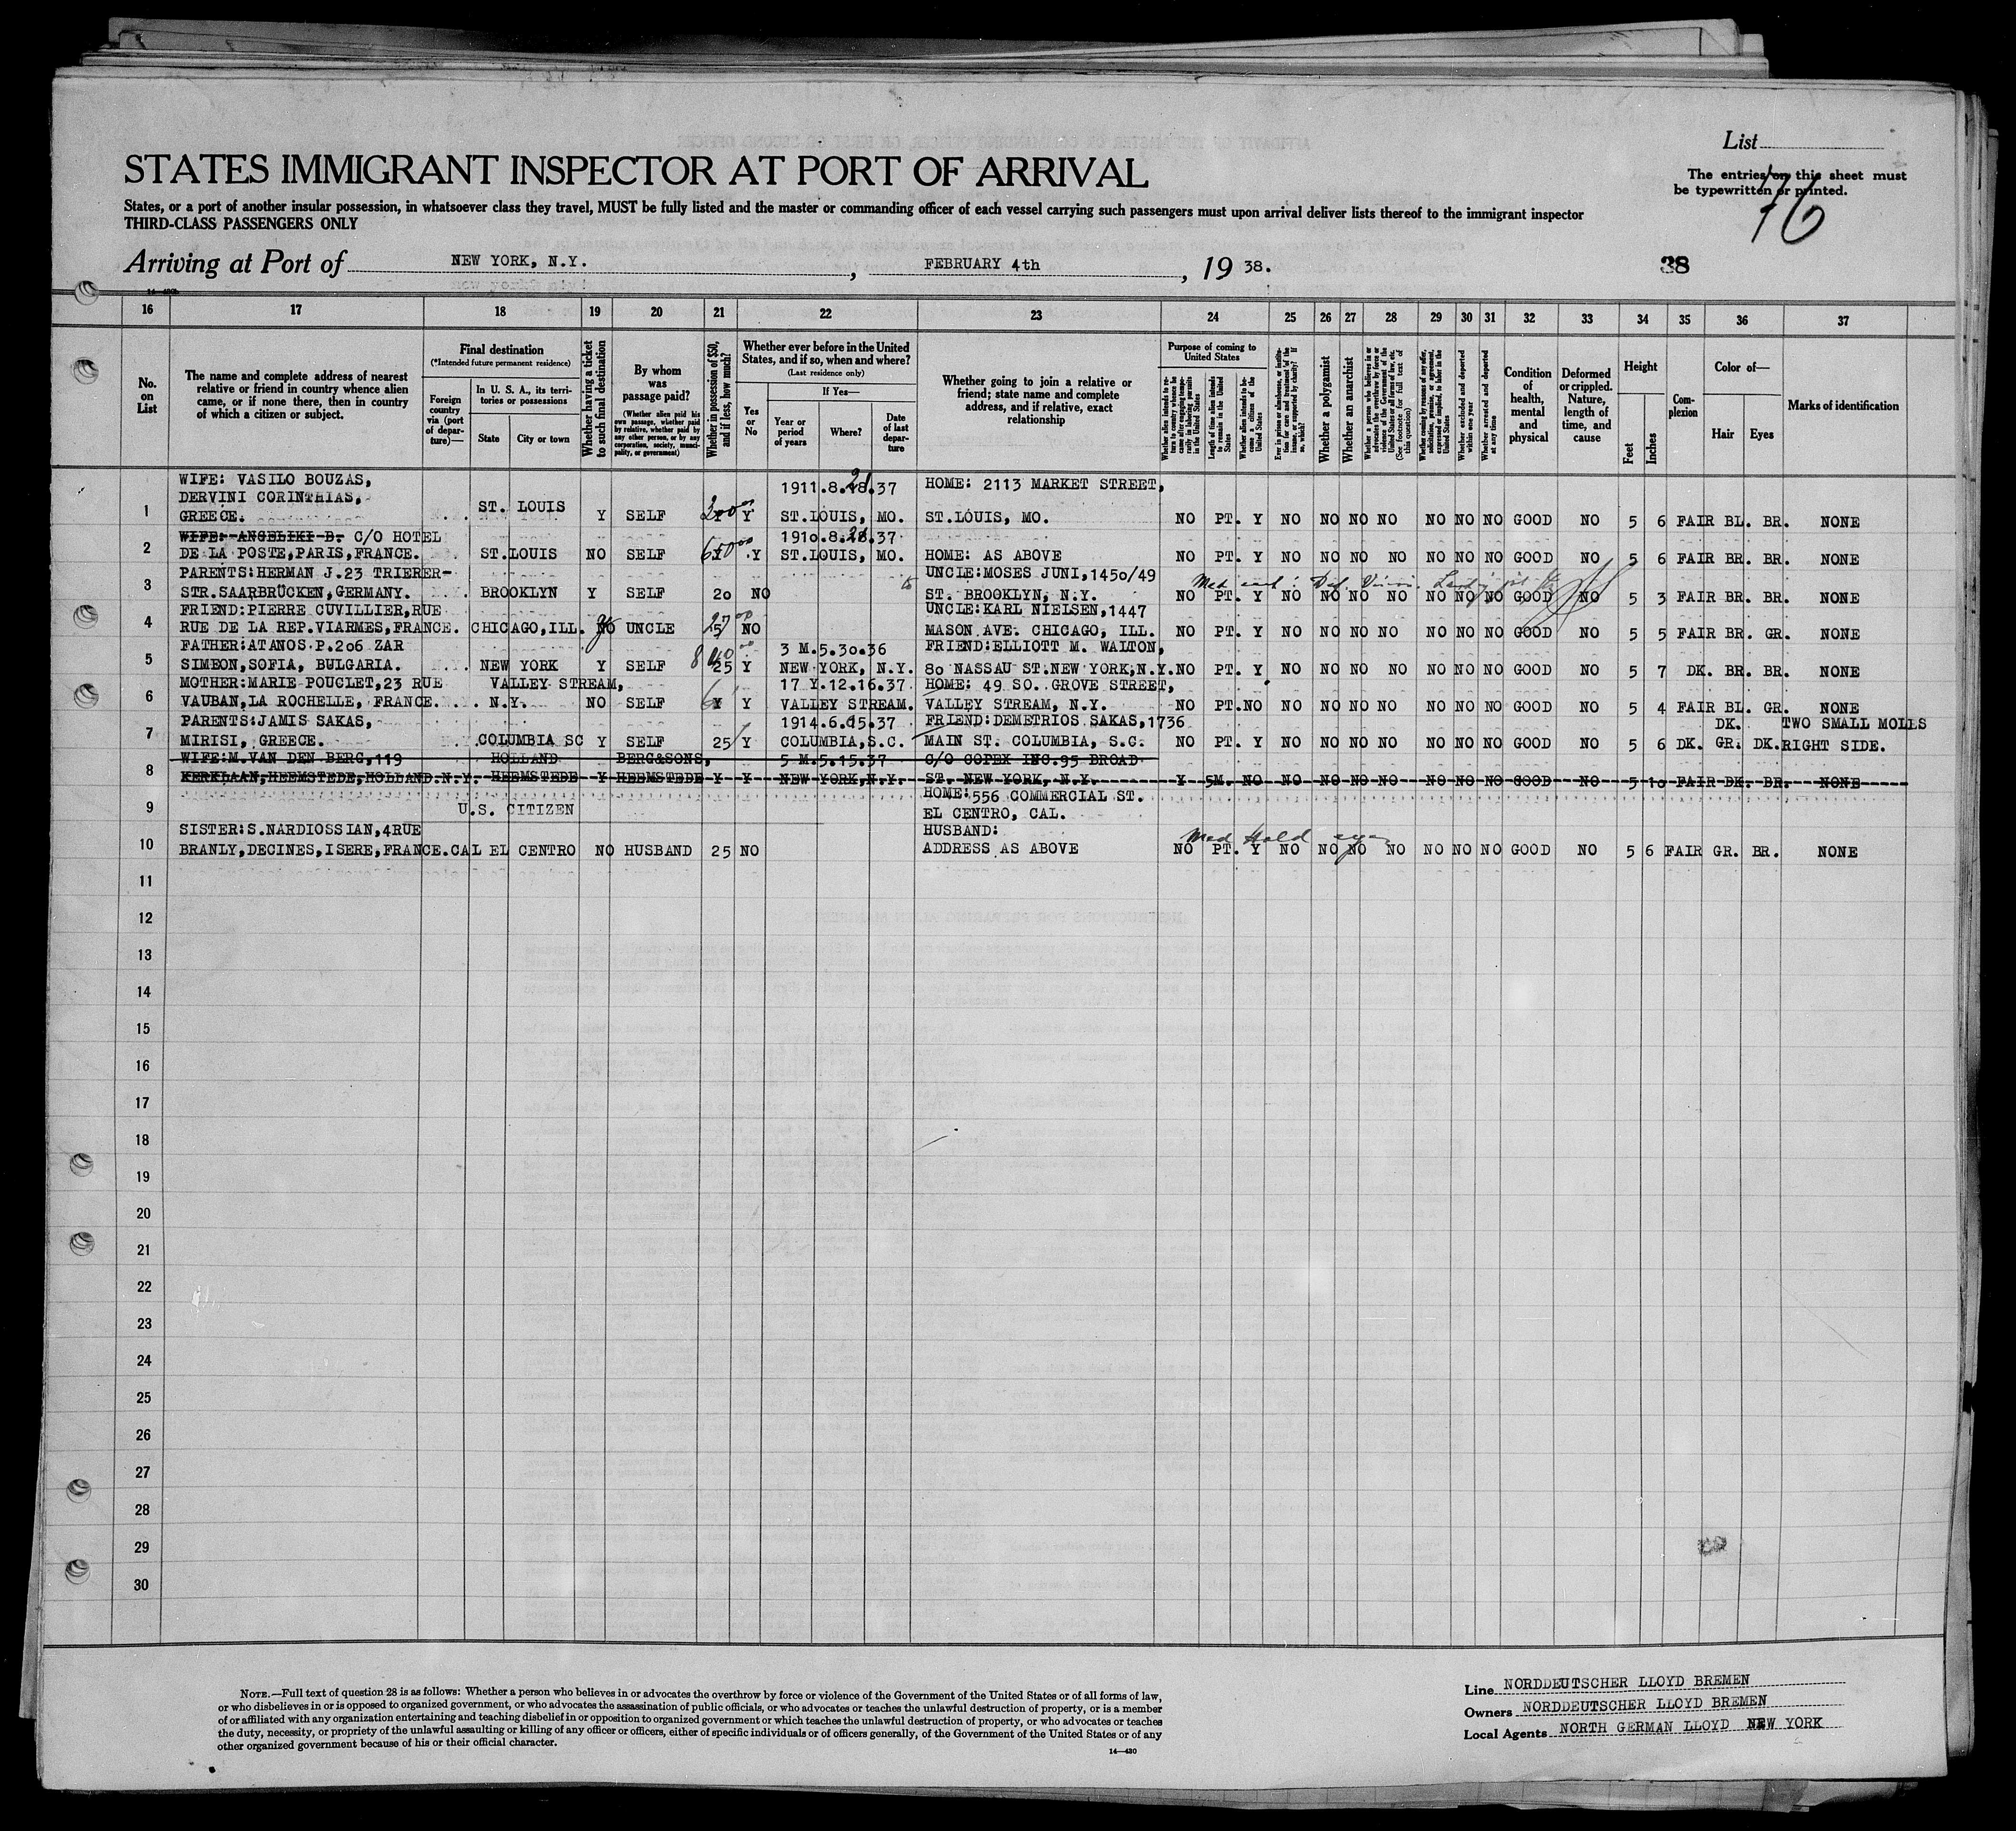 List
STATES IMMIGRANT INSPECTOR AT PORT OF ARRIVAL
The entries on this sheet must
be typewritten or printed.
76
States, or a port of another insular possession, in whatsoever class they travel, MUST be fully listed and the master or commanding officer of each vessel carrying such passengers must upon arrival deliver lists thereof to the immigrant inspector
THIRD-CLASS PASSENGERS ONLY
Arriving at Port of NEW YORK, N.Y., FEBRUARY 4th, 19 38. 38
16 17 18 19 20 21 22 23 24 25 26 27 28 29 30 31 32 33 34 35 36 37
No. on List
The name and complete address of nearest relative or friend in country whence alien came, or if none there, then in country of which a citizen or subject.
Final destination
(*Intended future permanent residence)
Foreign country via (port of departure)—
In U. S. A., its territories or possessions
State
City or town
Whether having a ticket to such final destination
By whom was passage paid?
(Whether alien paid his own passage, whether paid by relative, whether paid by any other person, or by any corporation, society, municipality, or government)
Whether in possession of $50, and if less, how much?
Whether ever before in the United States, and if so, when and where?
(Last residence only)
Yes or No
If Yes—
Year or period of years
Where?
Date of last departure
Whether going to join a relative or friend; state name and complete address, and if relative, exact relationship
Purpose of coming to United States
Length of time alien intends to remain in the United States
Whether alien intends to become a citizen of the United States
Whether a polygamist
Whether an anarchist
(See footnote for full text of this question)
Whether excluded and deported within one year
Whether arrested and deported at any time
Condition of health, mental and physical
Deformed or crippled. Nature, length of time, and cause
Height
Feet
Inches
Complexion
Color of—
Hair
Eyes
Marks of identification
WIFE: VASILO BOUZAS, 1911.8.18.37 HOME: 2113 MARKET STREET,
DERVINI CORINTHIAS,
1 GREECE. ST. LOUIS Y SELF 200 Y ST.LOUIS, MO. ST.LOUIS, MO. NO PT. Y NO NO NO NO NO NO NO GOOD NO 5 6 FAIR BL. BR. NONE
WIFE: ANGELIKI B. C/O HOTEL 1910.8.28.37
2 DE LA POSTE,PARIS,FRANCE. ST.LOUIS NO SELF 650 Y ST.LOUIS, MO. HOME: AS ABOVE NO PT. Y NO NO NO NO NO NO NO GOOD NO 5 6 FAIR BR. BR. NONE
PARENTS:HERMAN J.23 TRIERER- UNCLE:MOSES JUNI,1450/49
3 STR.SAARBRÜCKEN,GERMANY. BROOKLYN Y SELF 20 NO ST. BROOKLYN, N.Y. NO PT. Y NO NO NO NO NO NO NO GOOD NO 5 3 FAIR BR. BR. NONE
FRIEND:PIERRE CUVILLIER,RUE UNCLE:KARL NIELSEN,1447
4 RUE DE LA REP.VIARMES,FRANCE. CHICAGO,ILL. NO UNCLE 25 NO MASON AVE. CHICAGO, ILL. NO PT. Y NO NO NO NO NO NO NO GOOD NO 5 5 FAIR BR. GR. NONE
FATHER:ATANOS.P.206 ZAR 3 M.5.30.36 FRIEND:ELLIOTT M. WALTON,
5 SIMEON,SOFIA, BULGARIA. NEW YORK Y SELF 25 Y NEW YORK, N.Y. 80 NASSAU ST.NEW YORK,N.Y. NO PT. Y NO NO NO NO NO NO NO GOOD NO 5 7 DK. BR. BR. NONE
MOTHER:MARIE POUCLET,23 RUE VALLEY STREAM, 17 Y.12.16.37 HOME: 49 SO. GROVE STREET,
6 VAUBAN,LA ROCHELLE, FRANCE. N.Y. NO SELF Y Y VALLEY STREAM. VALLEY STREAM, N.Y. NO PT. NO NO NO NO NO NO NO NO GOOD NO 5 4 FAIR BL. GR. NONE
PARENTS:JAMIS SAKAS, 1914.6.05.37 FRIEND:DEMETRIOS SAKAS,1736 DK. TWO SMALL MOLLS
7 MIRISI, GREECE. COLUMBIA SC Y SELF 25 Y COLUMBIA,S.C. MAIN ST. COLUMBIA, S.C. NO PT. Y NO NO NO NO NO NO NO GOOD NO 5 6 DK. GR. DK. RIGHT SIDE.
WIFE:M.VAN DEN BERG,119 HOLLAND BERG&SONS, 5 M.5.15.37 C/O COPEX INC.95 BROAD
8 KERKLAAN,HEEMSTEDE,HOLLAND.N.Y. HEEMSTEDE Y HEEMSTEDE Y Y NEW YORK,N.Y. ST. NEW YORK, N.Y. Y 5M. NO NO NO NO NO NO NO NO GOOD NO 5 10 FAIR DK. BR. NONE
HOME:556 COMMERCIAL ST.
9 U.S. CITIZEN EL CENTRO, CAL.
SISTER:S.NARDIOSSIAN,4RUE HUSBAND: Med Hold eyes
10 BRANLY,DECINES,ISERE,FRANCE.CAL EL CENTRO NO HUSBAND 25 NO ADDRESS AS ABOVE NO PT. Y NO NO NO NO NO NO NO GOOD NO 5 6 FAIR GR. BR. NONE
11
12
13
14
15
16
17
18
19
20
21
22
23
24
25
26
27
28
29
30
NOTE.—Full text of question 28 is as follows: Whether a person who believes in or advocates the overthrow by force or violence of the Government of the United States or of all forms of law,
or who disbelieves in or is opposed to organized government, or who advocates the assassination of public officials, or who advocates or teaches the unlawful destruction of property, or is a member
of or affiliated with any organization entertaining and teaching disbelief in or opposition to organized government or which teaches the unlawful destruction of property, or who advocates or teaches
the duty, necessity, or propriety of the unlawful assaulting or killing of any officer or officers, either of specific individuals or of officers generally, of the Government of the United States or of any
other organized government because of his or their official character.
14—430
Line NORDDEUTSCHER LLOYD BREMEN
Owners NORDDEUTSCHER LLOYD BREMEN
Local Agents NORTH GERMAN LLOYD NEW YORK